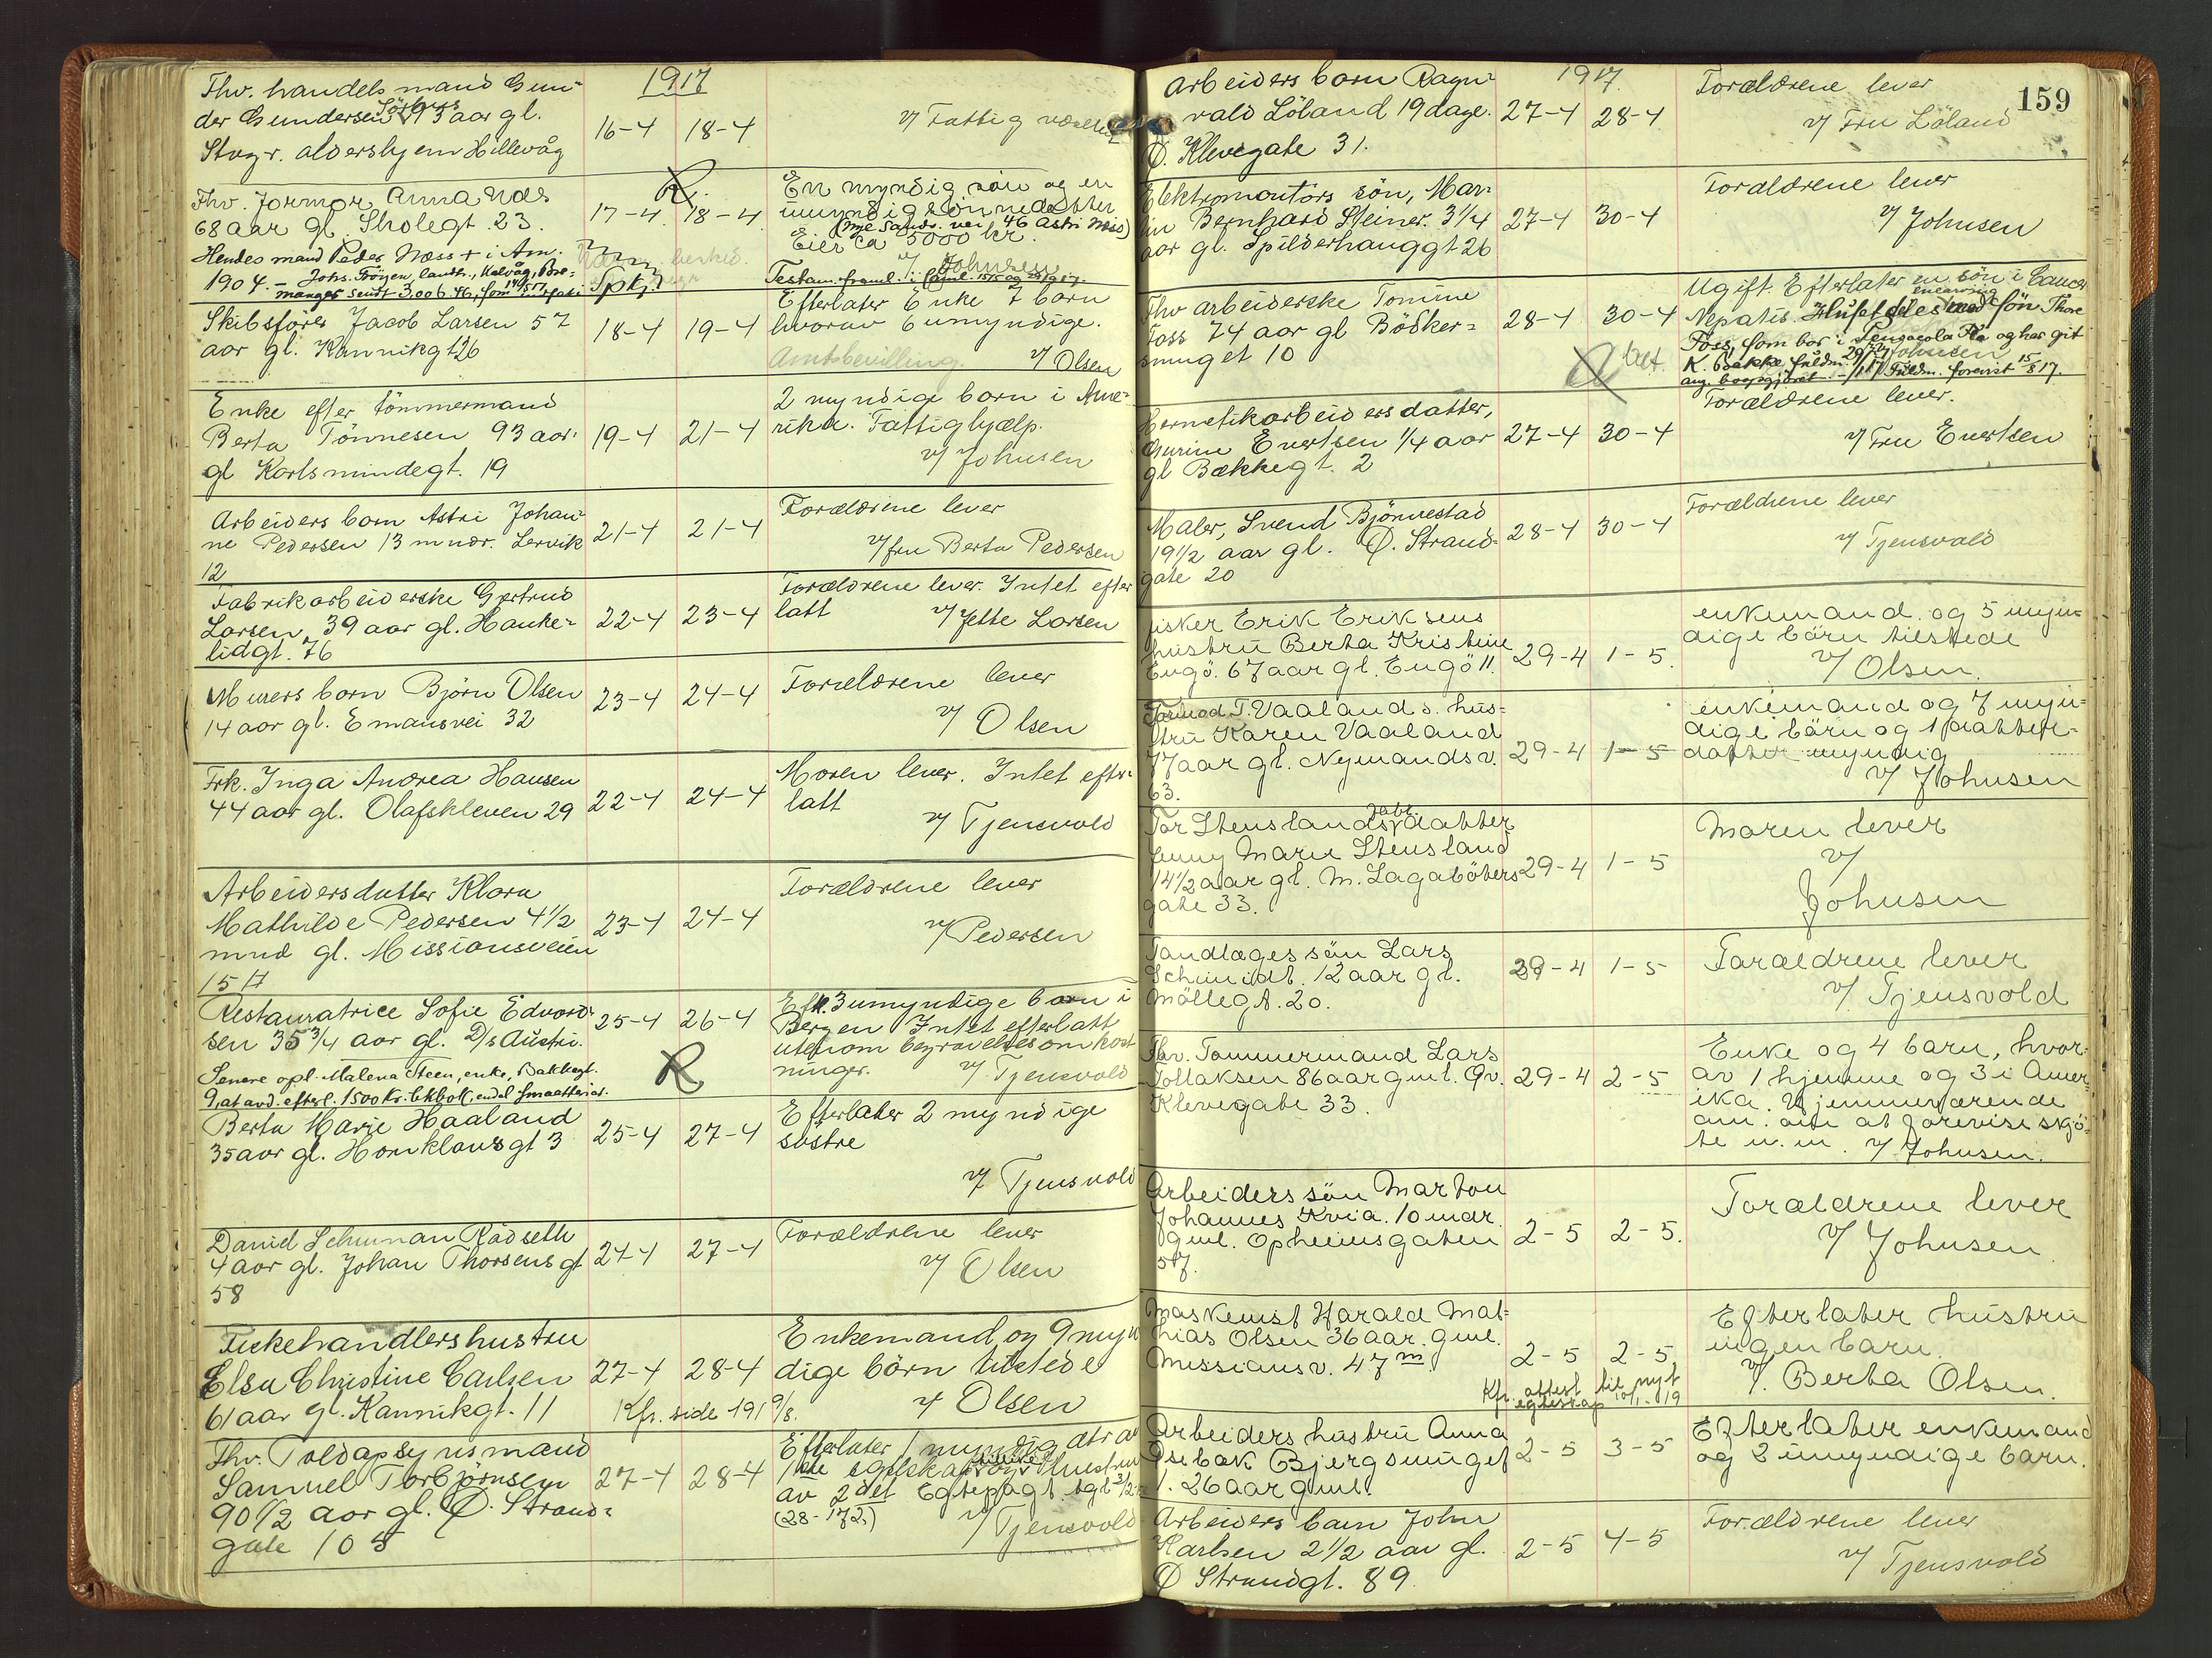 1917
Thv. handelsmand Gun-
der Gundersen 93 aar gl.
Stvgr. aldershjem Hillevåg
16-4 18-4
v/ Fattigvæsenet
Thv. Jormor Anna Næs
68 aar gl. Skolegt 23.
Hendes mand Peder Næss + i Am.
1904.
17-4 18-4
En myndig sön og en
umyndig sönnedatter
Eier ca 5000 kr.
v/ Johnsen
Skibsförer Jacob Larsen 57
aar gl. Kannikgt 26
18-4 19-4
Efterlater Enke 7 born
hvorav 6 umyndige.
Amtsbevilling. v/ Olsen
Enke efter tömmermand
Berta Tönnesen 93 aar
gl Karlsmindegt. 19
19-4 21-4
2 myndige born i Ame-
rika. Fattighjælp.
v/ Johnsen
Arbeiders born Astri Johan-
ne Pedersen 13 mndr. Lervik
12
21-4 21-4
Forældrene lever
v/ fru Berta Pedersen
Fabrikarbeiderske Gertrud
Larsen, 39 aar gl. Hauke-
lidgt. 76
22-4 23-4
Forældrene lever. Intet efter
latt v/ Jette Larsen
Murers born Björn Olsen
14 aar gl. Emausvei 32
23-4 24-4
Forældrene lever
v/ Olsen
Frk. Inga Andrea Hansen
44 aar gl. Olafskleven 29
22-4 24-4
Moren lever. Intet efter-
latt
v/ Tjensvold
Arbeiders datter Klara
Mathilde Pedersen 4 1/2
mnd gl. Missionsveien
15
23-4 24-4
Forældrene lever
v/ Pedersen
Restauratrice Sofie Edvard-
sen 35 3/4 aar gl. D/s Austri.
Senere opl. Malena Steen, enke, Bakkegt.
9, at avd. efterl. 1500 kr.
25-4 26-4
Eft. 3 umyndige born i
Bergen Intet efterlatt
utenom begravelsesomkost
ninger. v/ Tjensvold
Berta Marie Haaland
35 aar gl. Homklausgt 3
25-4 27-4
Efterlater 2 myndige
söstre
v/ Tjensvold
Daniel Schuman Rödseth
4 aar gl. Johan Thorsens gt
58
24-4 27-4
Forældrene lever
v/ Olsen
Fiskehandlers hustru
Elsa Christine Carlsen
61 aar gl. Kannikgt. 11
27-4 28-4
Kfr. side 191
Enkemand og 9 myn
dige börn tilstede
v/ Olsen
Thv. Toldopsynsmand
Samuel Torbjörnsen
90 1/2 aar gl. Ö. Strand-
gate 105
27-4 28-4
Efterlater 1 myndig
av 2det Egtepagt
(28-172)
v/ Tjensvold
159
1917.
Arbeiders born Ragn-
vald Löland 19 dage.
Ö. Klevegate 31.
27-4 28-4
Forældrene lever
v/ Fru Löland
Elektromontörs sön, Mar-
tin Bernhard Steiner. 3 1/4
aar gl. Spilderhauggt 26
27-4 30-4
Forældrene lever
v/ Johnsen
Thv arbeiderske Tomine
Foss 74 aar gl Bödker-
smuget 10
28-4 30-4
Ugift. Efterlater en sön i
Foss, som bor i Pensacola Fla og har git
Hermetikarbeiders datter,
Gurine Evertsen 1/4 aar
gl Bækkegt. 2
27-4 30-4
Forældrene lever.
v/ Fru Evertsen
Maler, Svend Bjönnestad
19 1/2 aar gl. Ö. Strand-
gate 20
28-4 30-4
Forældrene lever
v/ Tjensvold
fisker Erik Eriksens
hustru Berta Kristine
Engö. 67 aar gl. Engö 11.
29-4 1-5.
enkemand og 5 myn-
dige börn tilstede
v/ Olsen.
Formad T. Vaalands hus-
tru Karen Vaaland
77 aar gl. Nymandsv.
63.
29-4 1-5
enkemand og 7 myn-
dige börn og 1 datter-
datter myndig
v/ Johnsen
Tor Stenslands datter
Jenny Marie Stensland
14 1/2 aar gl. M. Lagaböters
gate 33.
29-4 1-5
Moren lever
v/
Johnsen
Tandlæges sön Lars
Schmidt. 12 aar gl.
Möllegt. 20.
29-4 1-5
Forældrene lever
v/ Tjensvold
Thv. Tømmermand Lars
Tollaksen 86 aar gml. Øv.
Klevegate 33.
29-4 2-5
Enke og 4 barn, hvor-
av 1 hjemme og 3 i Amer-
ika. Hjemmeværende
om at forevise skjö-
te m.m. v/ Johnsen.
Arbeiders sön Marton
Johannes Kvia. 10 mdr.
gml. Opheimsgaten
57.
2-5 2-5.
Forældrene lever
v/ Johnsen
Maskenist Harald Mat-
hias Olsen 36 aar. gml.
Missionsv. 47 m.
2-5 2-5
Kfr. attest til nyt
egteskap 10/1-19
Efterlater hustru
ingen barn.
v/. Berta Olsen.
Arbeiders hustru Anna
Osebak Bjergsmuget
1. 26 aar gml.
2-5 3-5
Efterlater enkemand
og 2 umyndige barn.
Arbeiders barn John
Karlsen 2 1/2 aar gl.
Ö Strandgt. 89
2-5 4-5
Forældrene lever
v/ Tjensvold